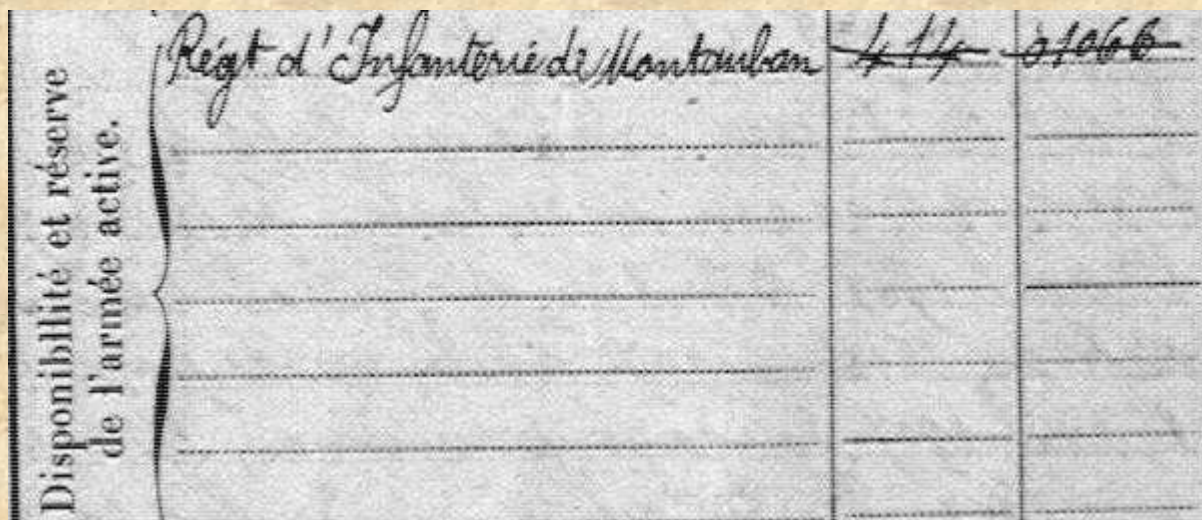 Disponibilité et réserve
de l'armée active.
Régt d'Infanterie de Montauban 414 01066